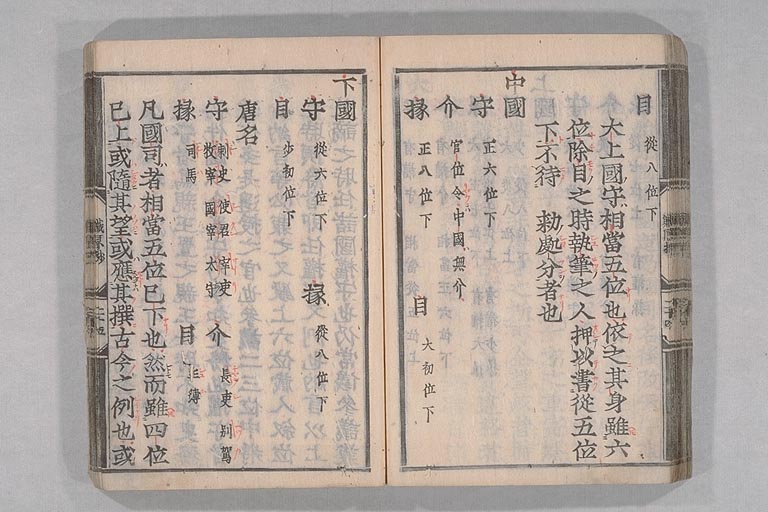 目 從八位下
大上國守相當五位也依之其身雖六
位除目之時執筆之人押以書從五位
下不待 勅處分者也
中國
守 正六位下
介 官位令中國無介
掾 正八位下 目 大初位下
下國
守 從六位下 掾 從八位下
目 少初位下
唐名
守 刺史 使君 宰吏 牧宰 國宰 太守 介 長吏 別駕
掾 司馬 目 主簿
凡國司者相當五位已下也然而雖四位
已上或隨其望或應其撰古今之例也或